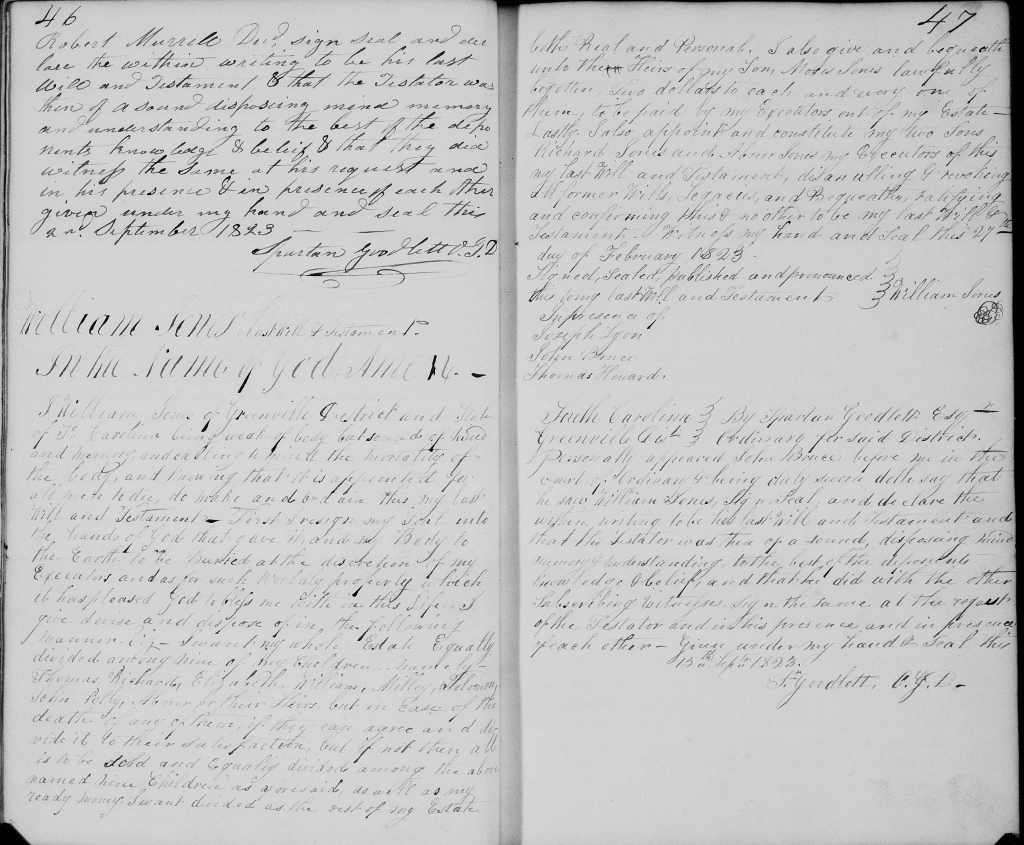 46
Robert Murrell Decd, sign seal and dec
lare the within writing to be his last
Will and Testament & that the Testator was
then of a sound disposing mind memory
and understanding to the best of the depo
nents knowledge & belief & that they did
witness the same at his request and
in his presence & in presence of each other
given under my hand and seal this
September 1823
Spartan Goodlett O.G.D
William Jones Last Will & Testament
In the Name of God Amen. –
I William Jones of Greenville District and State
of So Carolina being weak of body but sound of mind
and memory and calling to mind the mortality of
the body, and knowing that it is appointed for
all men to die, do make and ordain this my last
Will and Testament – First I resign my Soul into
the hands of God that gave it and my Body to
the Earth to be Buried at the discretion of my
Executors and as for such Worldly property which
it has pleased God to bless me with in this Life I
give devise and dispose of in the following
manner Viz – I want my whole Estate Equally
divided among nine of my Children namely –
Thomas, Richard, Elizabeth, William, Milley, Solomon,
John, Polly, Abner or their Heirs but in Case of the
death of any of them, if they can agree and di
vide it to their satisfaction, but if not then all
is to be Sold and Equally divided among the above
named nine Children as aforesaid, as well as my
ready money I want divided as the rest of my Estate
47
both Real and Personal. I also give and bequeath
unto the Heirs of my Son Moses Jones lawfully
begotten, two dollars to each and every one of
them, to be paid by my Executors, out of my Estate –
Lastly I also appoint and constitute my two Sons
Richard Jones and Abner Jones my Executors of this
my last Will and Testament, disanulling & revoking
all former Wills, Legacies, and Bequeaths, ratifying
and confirming this & no other to be my last Will &
Testament – Witness my hand and Seal this 27th
day of February 1823.
Signed, Sealed, published and pronounced
this to my last Will and Testament William Jones
In presence of
Joseph Lyon
John Bruce
Thomas Howard.
South Carolina } By Spartan Goodlett Esqr
Greenville Dist } Ordinary for said District.
Personally appeared John Bruce before me in the
court of Ordinary & being duly sworn doth say that
he saw William Jones, Sign Seal, and declare the
within writing to be his last Will and Testament and
that the Testator was then of a sound, disposing mind
memory & understanding to the best of the deponents
knowledge & belief, and that he did with the other
Subscribing Witnesses Sign the same at the request
of the Testator and in his presence and in presence
of each other – Given under my hand & Seal this
13th Sept 1823.
S. Goodlett, O.G.D –